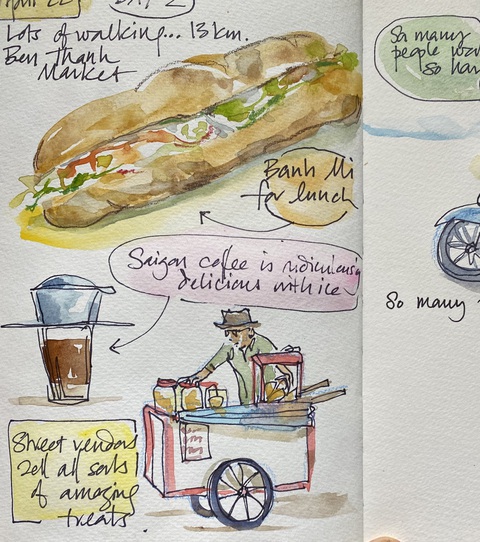 April 22
DAY 2
Lots of walking... 13 km.
Ben Thanh
Market
Banh Mi
for lunch
Saigon coffee is ridiculously
delicious with ice
Street vendors
sell all sorts
of amazing
treats
So many
people
so
So many